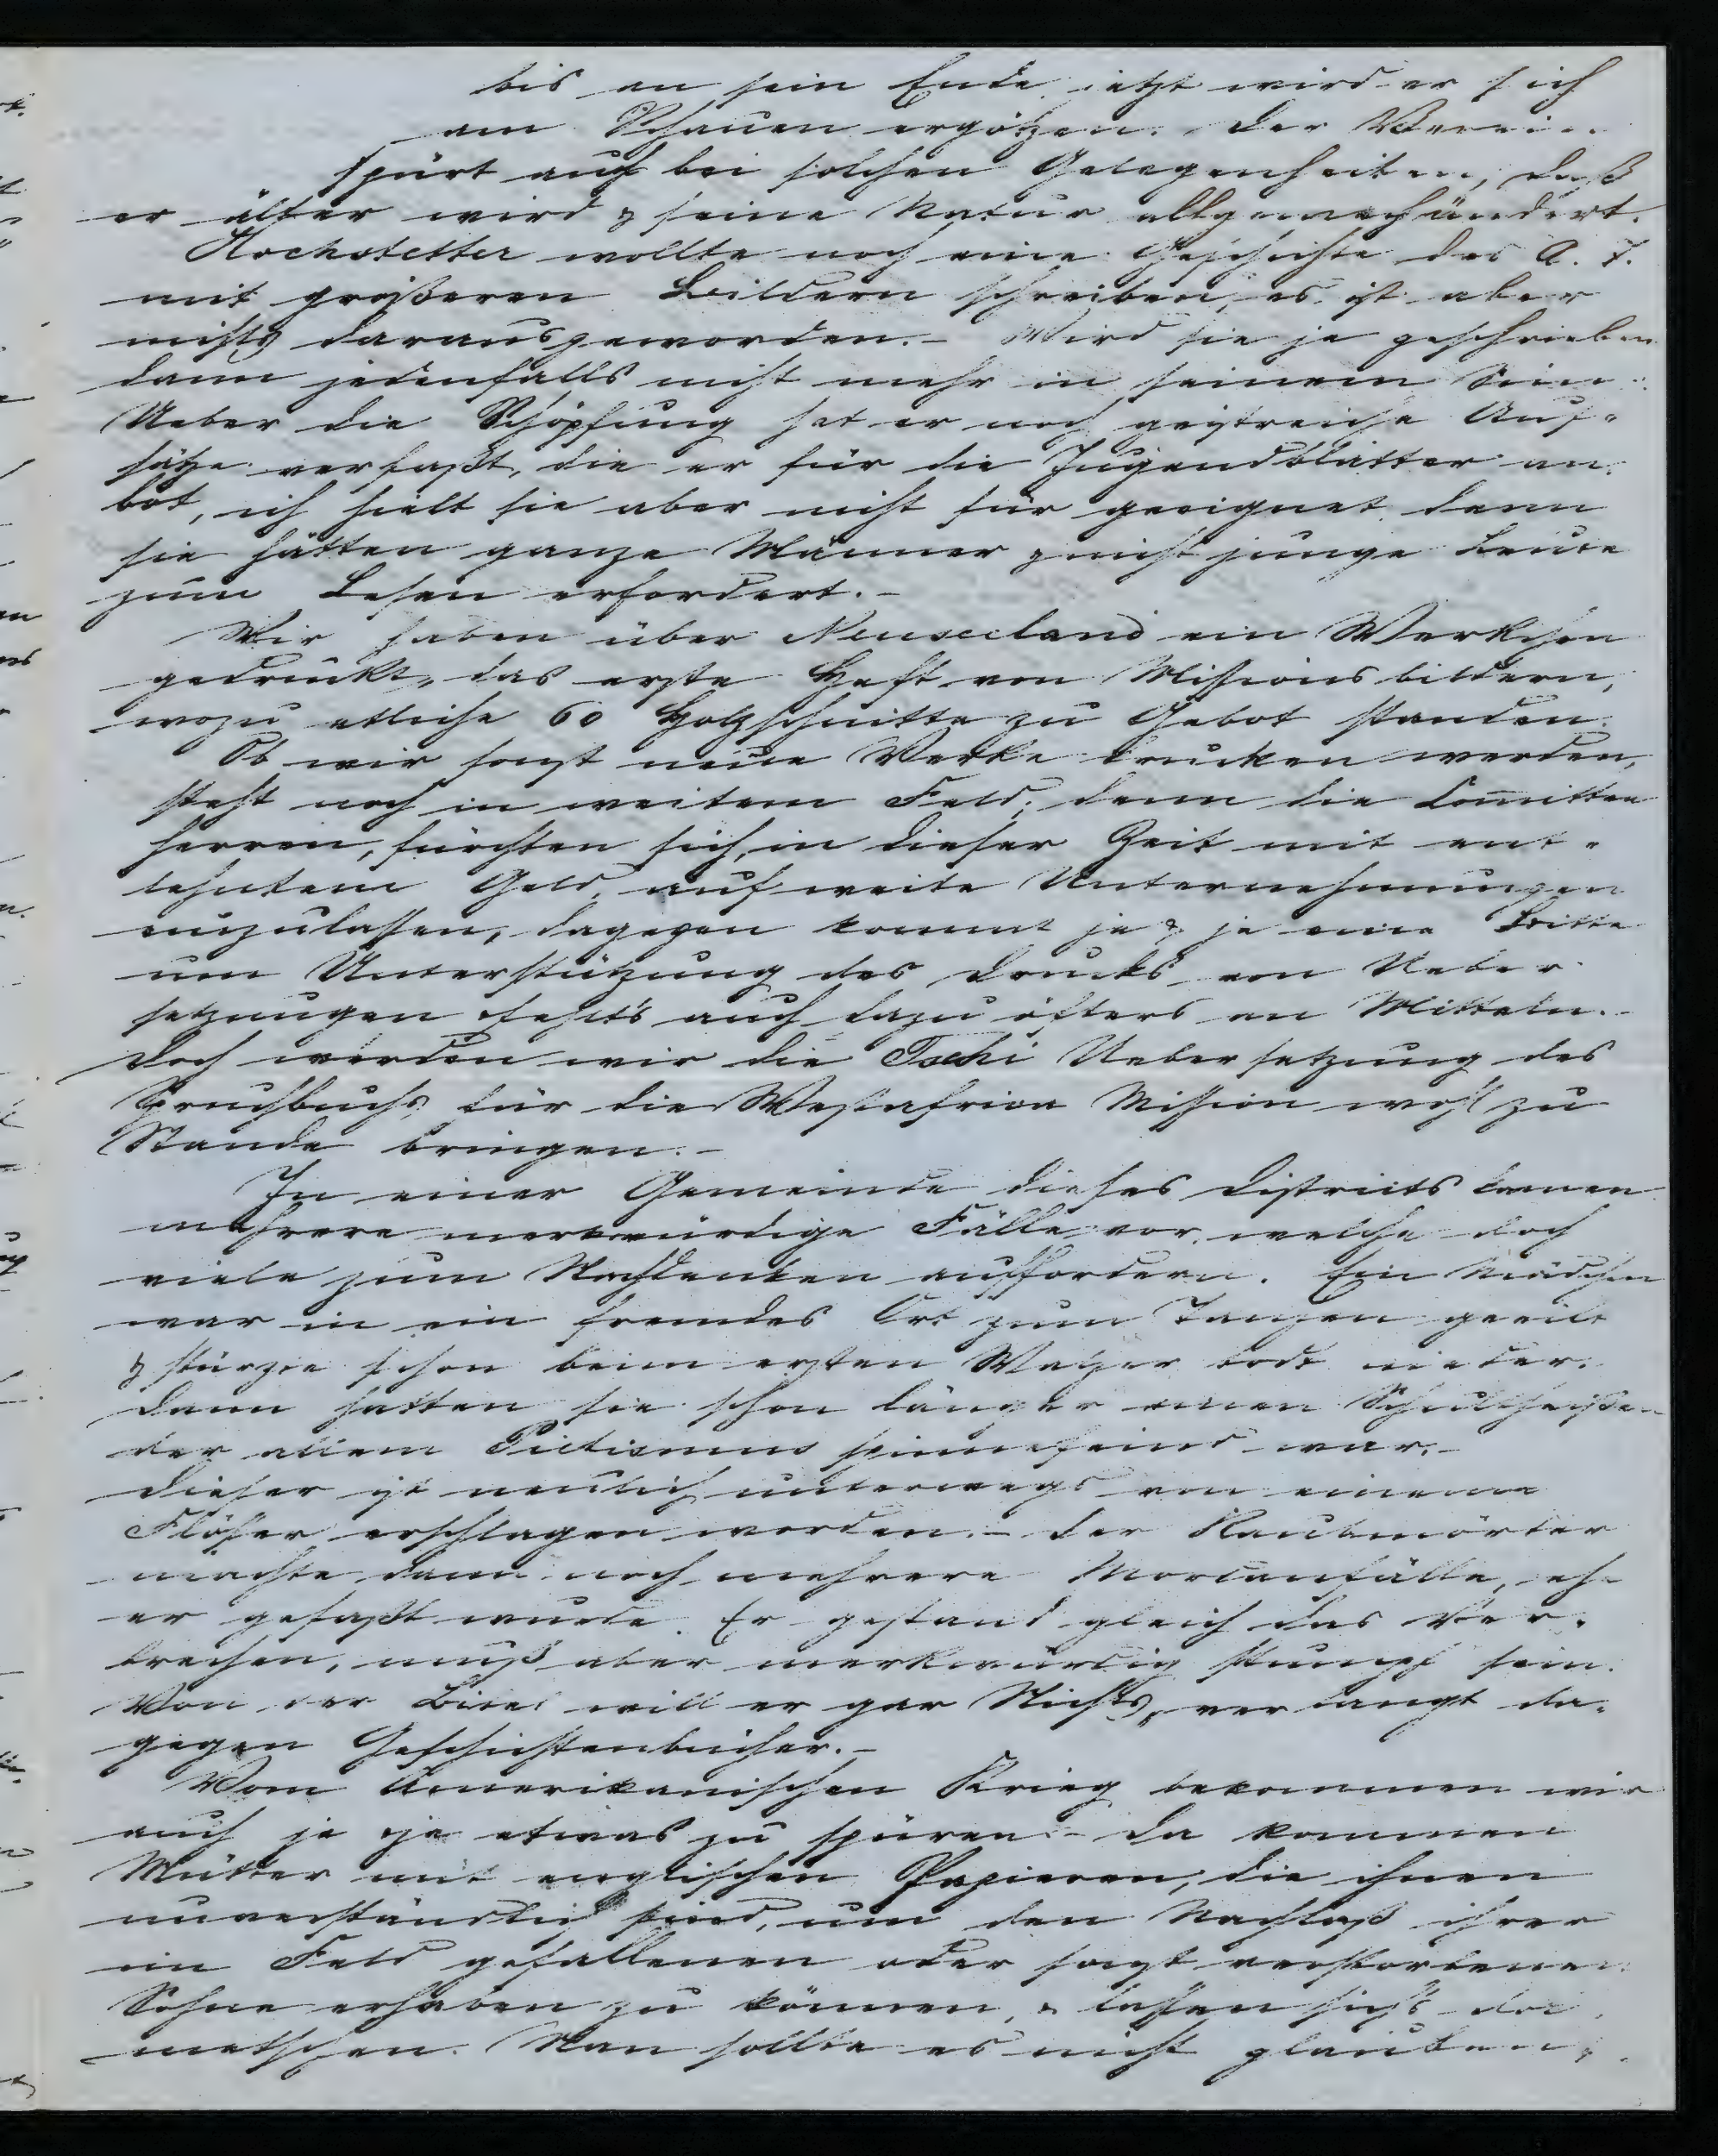 bis an sein Ende jetzt wird er sich
am Schauen ergötzen. Der Verein
spürt auch bei solchen Gelegenheiten, daß
er älter wird & seine Natur allgemach ändert.
Hochstetter wollte noch eine Geschichte des A. T.
mit größeren Bildern schreiben, es ist aber
nichts daraus geworden. – Wird sie je geschrieben
dann jedenfalls nicht mehr in seinem Sinn.
Ueber die Schöpfung hat er noch geistreiche Auf-
sätze verfaßt, die er für die Jugendblätter an-
bot, ich hielt sie aber nicht für geeignet denn
sie hätten ganze Männer & nicht junge Leute
zum Lesen erfordert. –
Wir haben über Neuseeland ein Werkchen
gedruckt, das erste Heft von Missionsbildern,
wozu etliche 60 Holzschnitte zu Gebot standen.
Ob wir sonst neue Werke drucken werden,
steht noch in weitem Feld; denn die Committee
herren, fürchten sich, in dieser Zeit mit ent-
lehntem Geld, auf weite Unternehmungen
einzulassen, dagegen kommt je & je eine Bitte
um Unterstützung des Drucks von Ueber-
setzungen fehlts auch dazu öfters an Mitteln. –
Doch werden wir die Tschi Uebersetzung des
Spruchbuchs für die Westafrica Mission wohl zu
Stande bringen. –
In einer Gemeinde dieses Districts kamen
mehrere merkwürdige Fälle vor, welche doch
viele zum Nachdenken auffordern. Ein Mädchen
war in ein fremdes Ort zum Tanzen geeilt
& stürzte schon beim ersten Walzer todt nieder.
Dann hatten sie schon länger einen Schultheißen
der allem Pietismus spinnefeind war. –
Dieser ist neulich unterwegs von einem
Flößer erschlagen worden. – Der Raubmörder
machte dann noch mehrere Mordanfälle, eh
er gefaßt wurde. Er gestand gleich das Ver-
brechen, muß aber merkwürdig stumpf sein.
Von der Bibel will er gar Nichts, verlangt da-
gegen Geschichtenbücher. –
Vom Amerikanischen Krieg bekommen wir
auch je & je etwas zu spüren – da kommen
Mütter mit englischen Papieren, die ihnen
unverständlich sind, um den Nachlaß ihrer
im Feld gefallenen oder sonst verstorbenen
Sohne erheben zu können, & lassen sichs dol
metschen. Man sollte es nicht glauben,